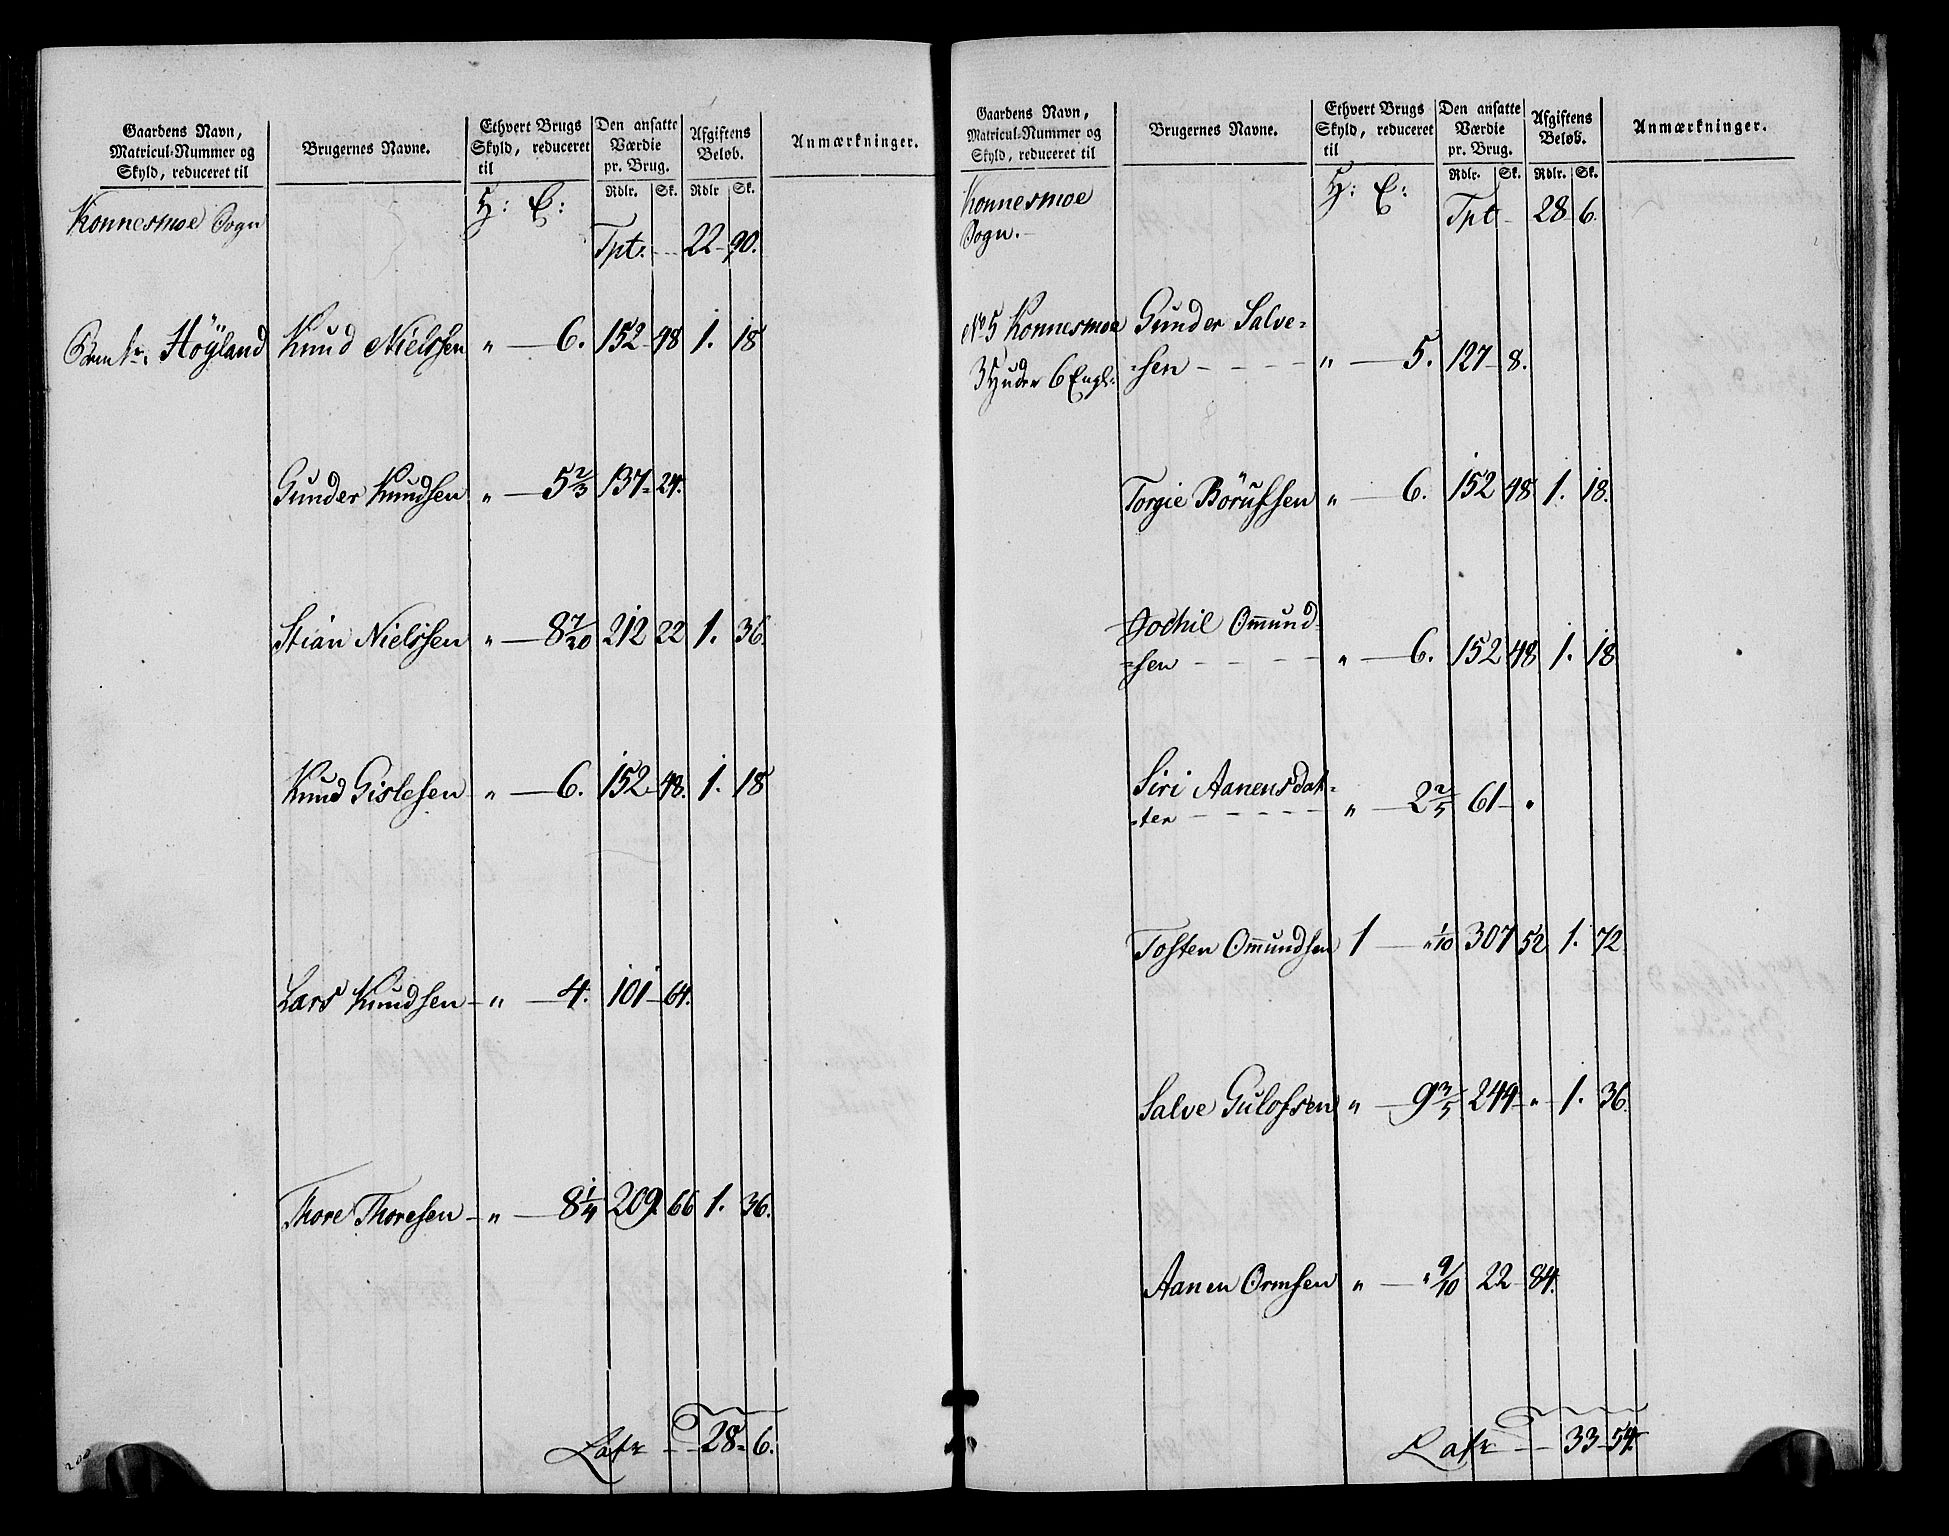 Gaardens Navn, Matricul-Nummer og Skyld, reduceret til | Brugernes Navne. | Ethvert Brugs Skyld, reduceret til | Den ansatte Værdie pr. Brug. Rdlr. Sk. | Afgiftens Beløb. Rdlr Sk. | Anmærkninger.
Konnesmoe Sogn H: E:
Tpt. 22 - 90.
Höyland Knud Nielssen " — 6. 152 - 48 1. 18
Gunder Knudsen " — 5 2/3 137 - 24.
Stian Nielssen " — 8 7/20 212 22 1. 36.
Knud Gislesen " — 6. 152. 48. 1. 18
Lars Knudsen " — 4. 101 - 64.
Thore Thoresen " — 8 1/4 209. 66 1. 36.
Latr 28 - 6.
Gaardens Navn, Matricul-Nummer og Skyld, reduceret til | Brugernes Navne. | Ethvert Brugs Skyld, reduceret til | Den ansatte Værdie pr. Brug. Rdlr. Sk. | Afgiftens Beløb. Rdlr. Sk. | Anmærkninger.
Konnesmoe H: E: Tpt 28 6.
Sogn.
No 5 Konnesmoe Gunder Salve=
3 Huder 6 Engl: =sen " — 5. 127 - 8.
Torgie Börufsen " — 6. 152 48 1. 18.
Omund
=sen " — 6. 152 48 1. 18
Siri Aanensdat=
=ter " — 2 2/5 61 - "
Tosten Omundsen 1 — " 1/10 307 52 1. 72
Salve Gulofsen " — 9 3/5 244 - " - 1. 36.
Aanen Ormsen " — " 9/10 22 - 84.
Latr 33 - 54.